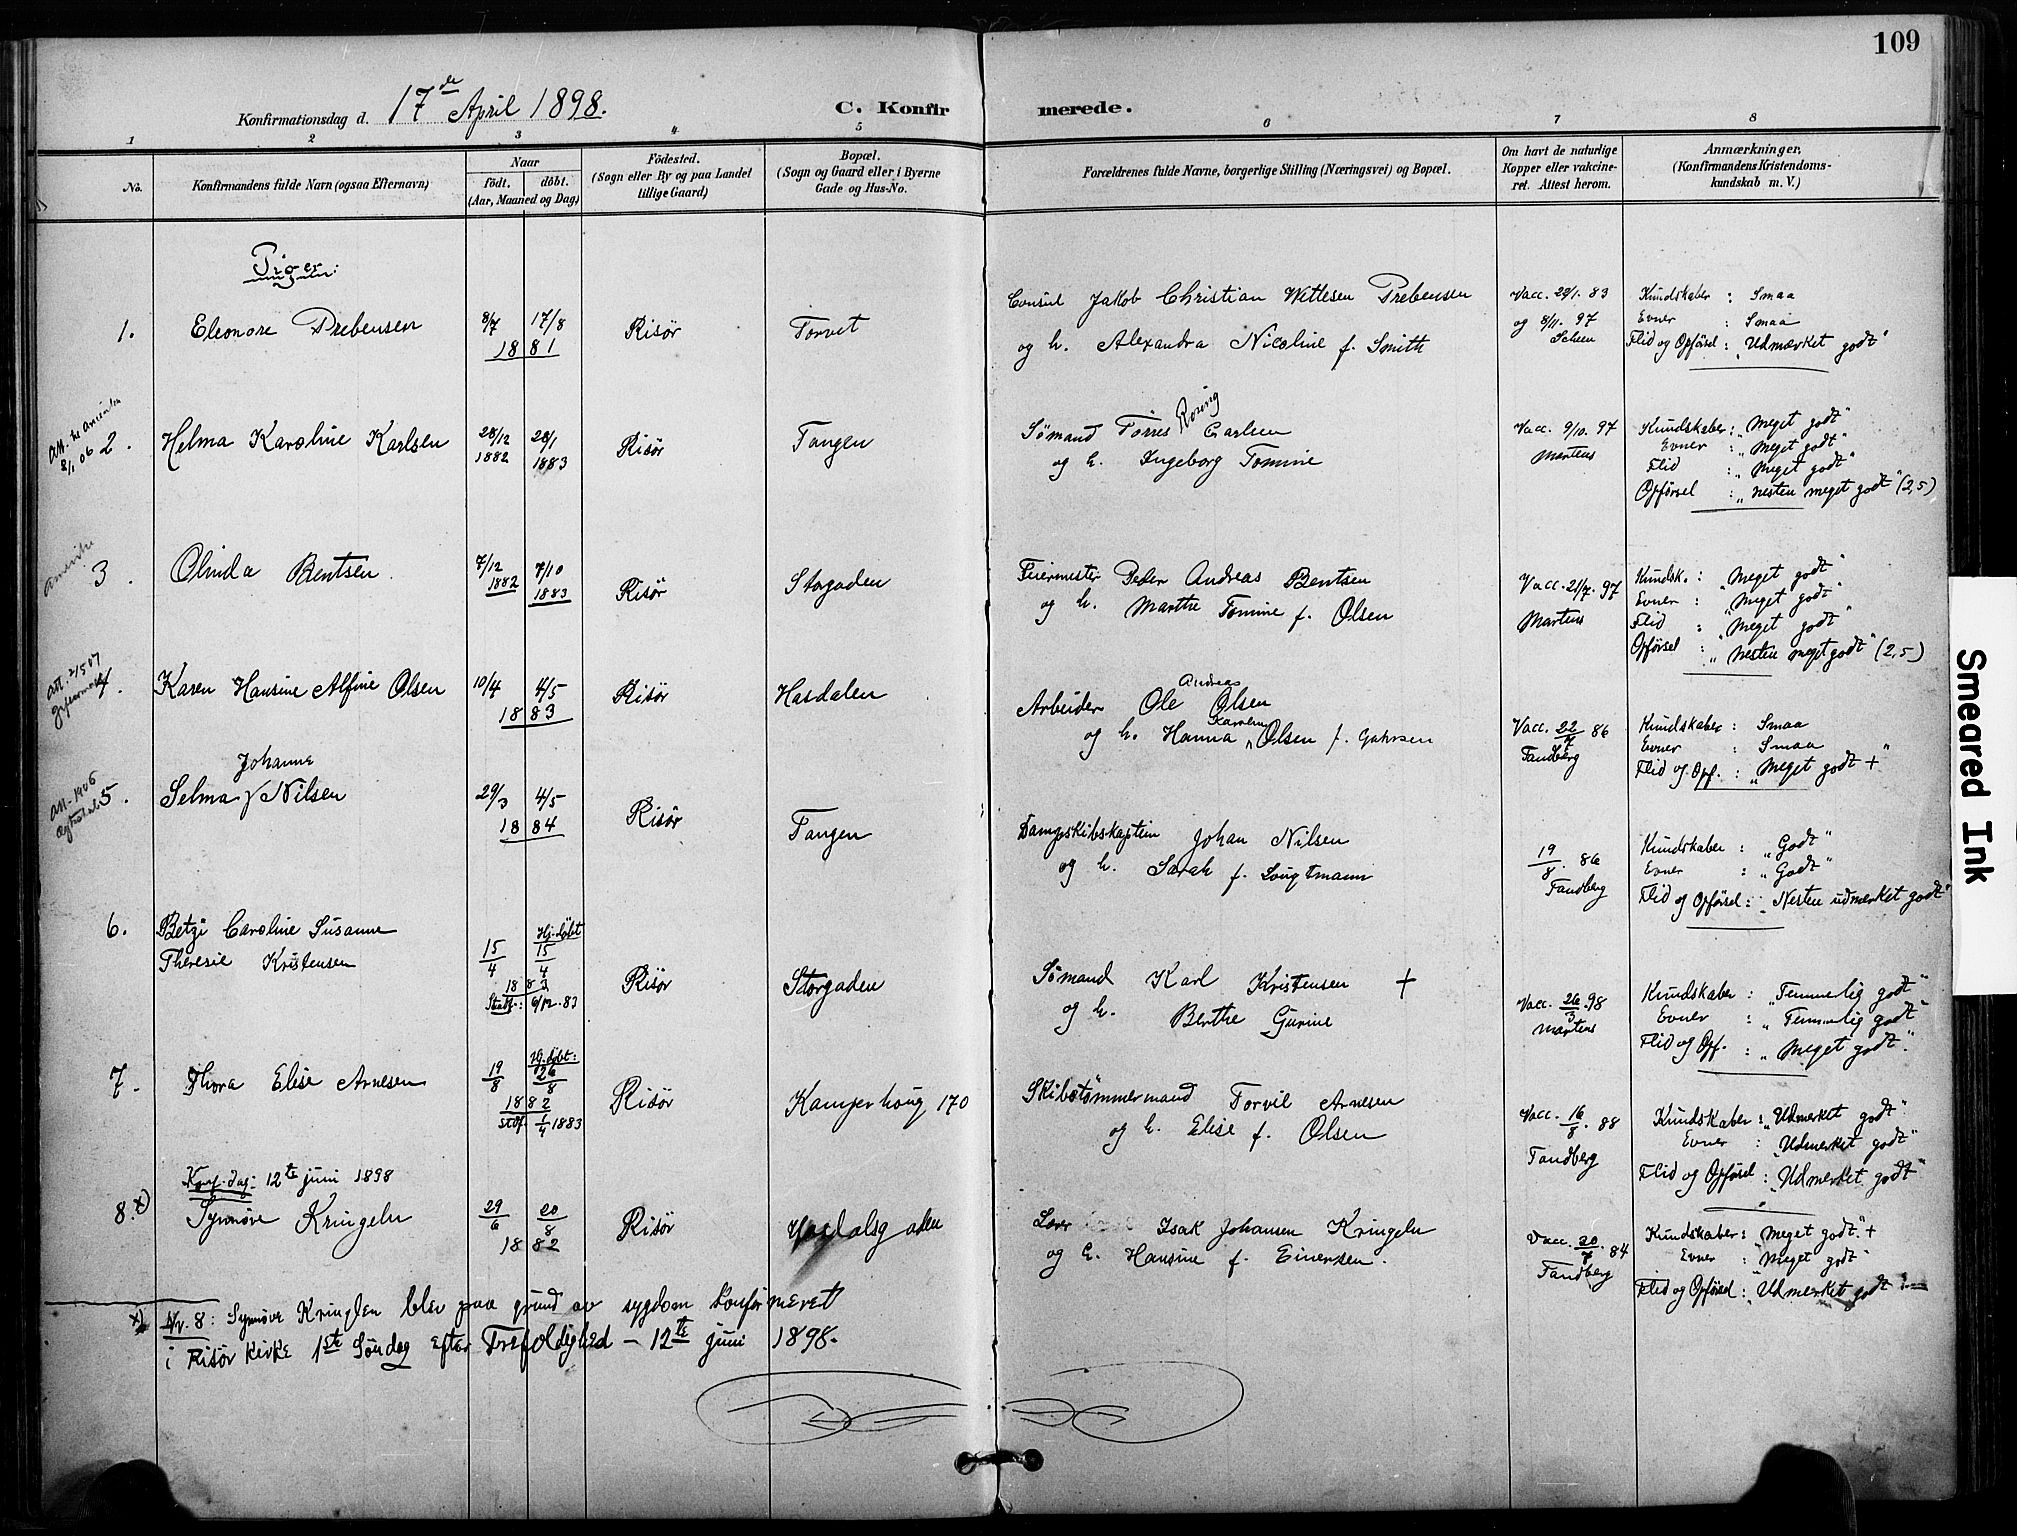 109
Konfirmationsdag d. 17de April 1898.
C. Konfirmerede.
1 2 3 4 5 6 7 8
No.
Konfirmandens fulde Navn (ogsaa Efternavn)
Naar
födt. döbt.
(Aar, Maaned og Dag)
Födested.
(Sogn eller By og paa Landet
tillige Gaard)
Bopæl.
(Sogn og Gaard eller i Byerne
Gade og Hus-No.
Forældrenes fulde Navne, borgerlige Stilling (Næringsvei) og Bopæl.
Om havt de naturlige
Kopper eller vakcine-
ret. Attest herom.
Anmærkninger,
(Konfirmandens Kristendoms-
kundskab m. V.)
Piger:
1. Eleonore Prebensen
8/7 17/8
1881
Risör
Torvet
Consul Jakob Christian Wittesen Prebensen
og h. Alexandra Nicoline f. Smith
Vacc. 29/1. 83
og 8/11. 97
Kundskaber : Smaa
Evner : Smaa
Flid og Opførsel : „Udmærket godt"
Att. 8/1 06
2. Helma Karoline Karlsen
28/12 28/1
1882 1883
Risør
Tangen
Sømand Törres Rosing Carlsen
og h. Ingeborg Tomine
Vacc. 9/10. 97
Martens
Kundskaber : „Meget godt"
Evner : „Meget godt"
Flid : „Meget godt"
Opførsel : „nesten meget godt" (2,5)
3. Olinda Bentsen
7/12 7/10
1882 1883
Risør
Storgaden
Feiermester Peder Andreas Bentsen
og h. Marthe Tomine f. Olsen
Vacc. 21/7. 97
Martens
Kundsk. : „Meget godt"
Evner : „Meget godt"
Flid : „Meget godt"
Opførsel : „Nesten meget godt" (2,5)
4. Karen Hansine Alfine Olsen
10/4 4/5
1883
Risør
Hasdalen
Arbeider Ole Andreas Olsen
og h. Hanna Karoline Olsen f.
Vacc. 22/4 86
Tandberg
Kundskaber : Smaa
Evner : Smaa
Flid og Opf. : „Meget godt +"
5. Selma Johanne Nilsen
29/3 4/5
1884
Risør
Tangen
Dampskibskaptein Johan Nilsen
og h. Sarah f.
19/8. 86
Tandberg
Kundskaber : „Godt"
Evner : „Godt"
Flid og Opførsel : „Nesten udmerket godt"
6. Betzi Caroline Susanne
Theresie Kristensen
15/4 Hj.døbt 15/4
1883
Stadf.: 6/12. 83
Risør
Storgaden
Sømand Karl Kristensen +
og h. Berthe Gurine
Vacc. 26/3. 98
Martens
Kundskaber : „Temmelig godt"
Evner : „Temmelig godt"
Flid og Opf. : „Meget godt."
7. Thora Elise Arnesen
19/8 Hj.døbt: 26/8
1882
Stdf. 1/4 1883
Risør
Kamperhoug 170
Skibstømmermand Torvil Arnesen
og h. Elise f. Olsen
Vacc. 16/8. 88
Tandberg
Kundskaber : „Udmerket godt"
Evner : „Udmerket godt"
Flid og Opførsel : „Udmerket godt"
Konf.dag: 12te juni 1898
8. x) Synnøve Kringeln
29/6 20/8
1882
Risør
Hasdalsgaden
Isak Johansen Kringeln
og h. Hansine f. Einersen.
Vacc. 20/7. 84
Tandberg
Kundskaber : „Meget godt" +
Evner : „Meget godt"
Flid og Opførsel : „Udmerket godt"
x) Nr. 8: Synnøve Kringlen blev paa grund av sygdom konfirmeret
i Risør kirke 1ste Søndag efter Trefoldighed – 12te juni 1898.
Smeared Ink